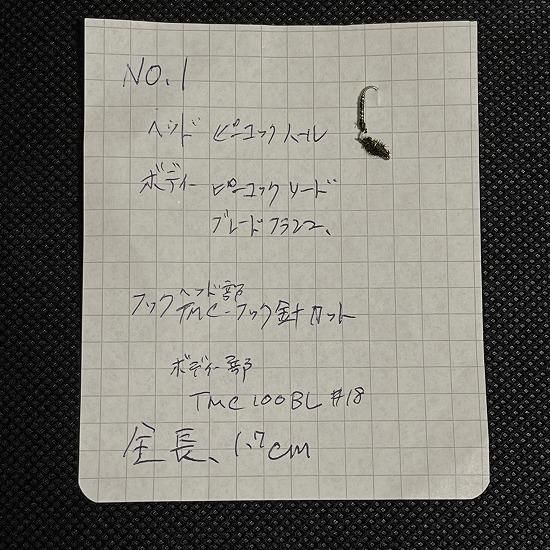 NO.1
ヘッド ピーコックハール
ボディー ピーコックソード
ブレードフランコ、
ヘッド部
フック TMC-フック針カット
ボディー部
TMC 100BL #18
全長、1.7cm